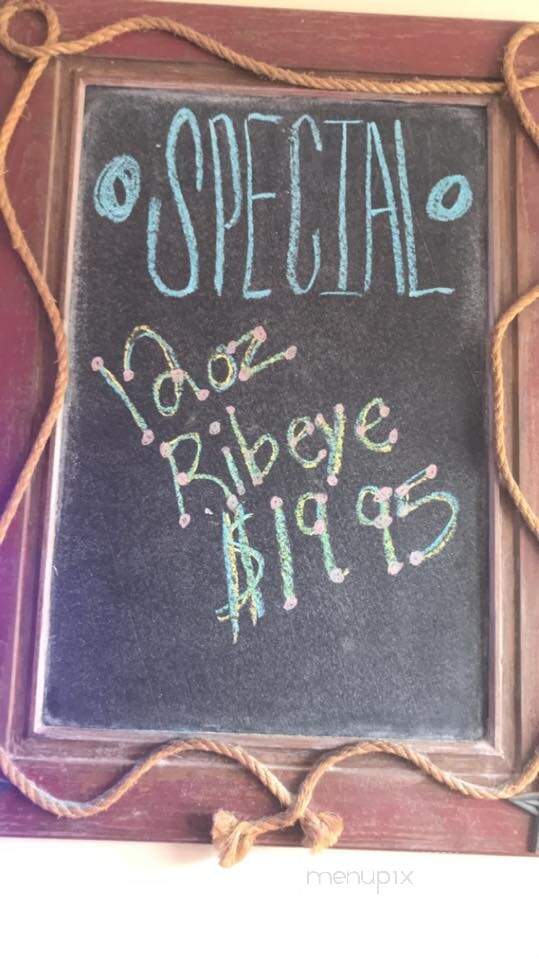 SPECIAL
12oz
Ribeye
$19.95
menupix